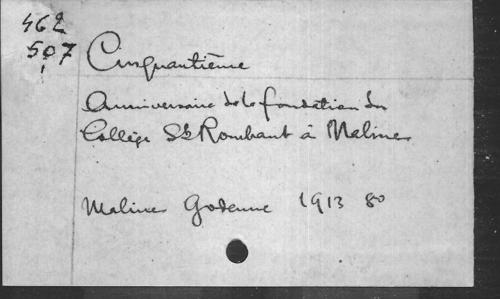 462
507
Cinquantième
Anniversaire de la fondation du
Collège St Rombaut à Malines
Malines Godenne 1913 8º